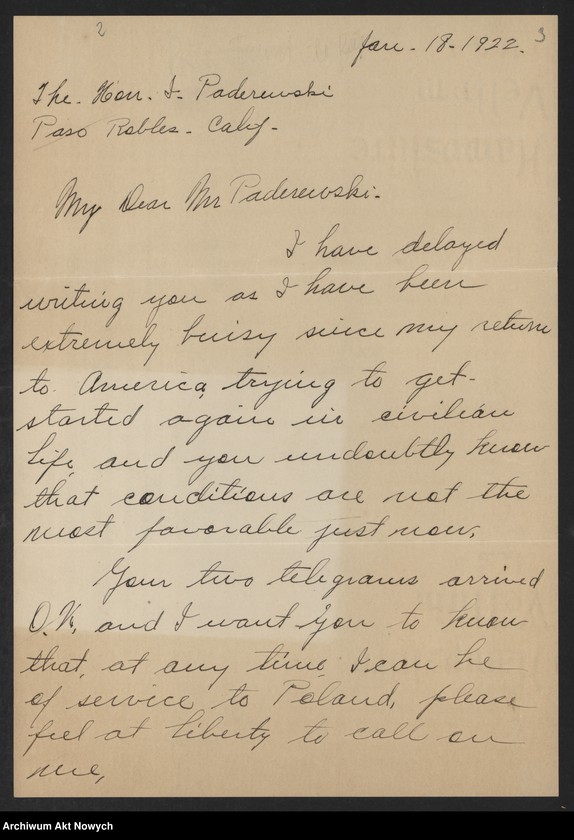 2
Jan. 18 - 1922. 3
The. Hon. I. Paderewski
Paso Robles - Calif -
My Dear Mr Paderewski -
I have delayed
writing you as I have been
extremely buisy since my return
to America, trying to get -
started again in civilian
life, and you undoubtly know
that conditions are not the
most favorable just now.
Your two telegrams arrived
O.K. and I want you to know
that, at any time, I can be
of service to Poland, please
feel at liberty to call on
me,
Archiwum Akt Nowych